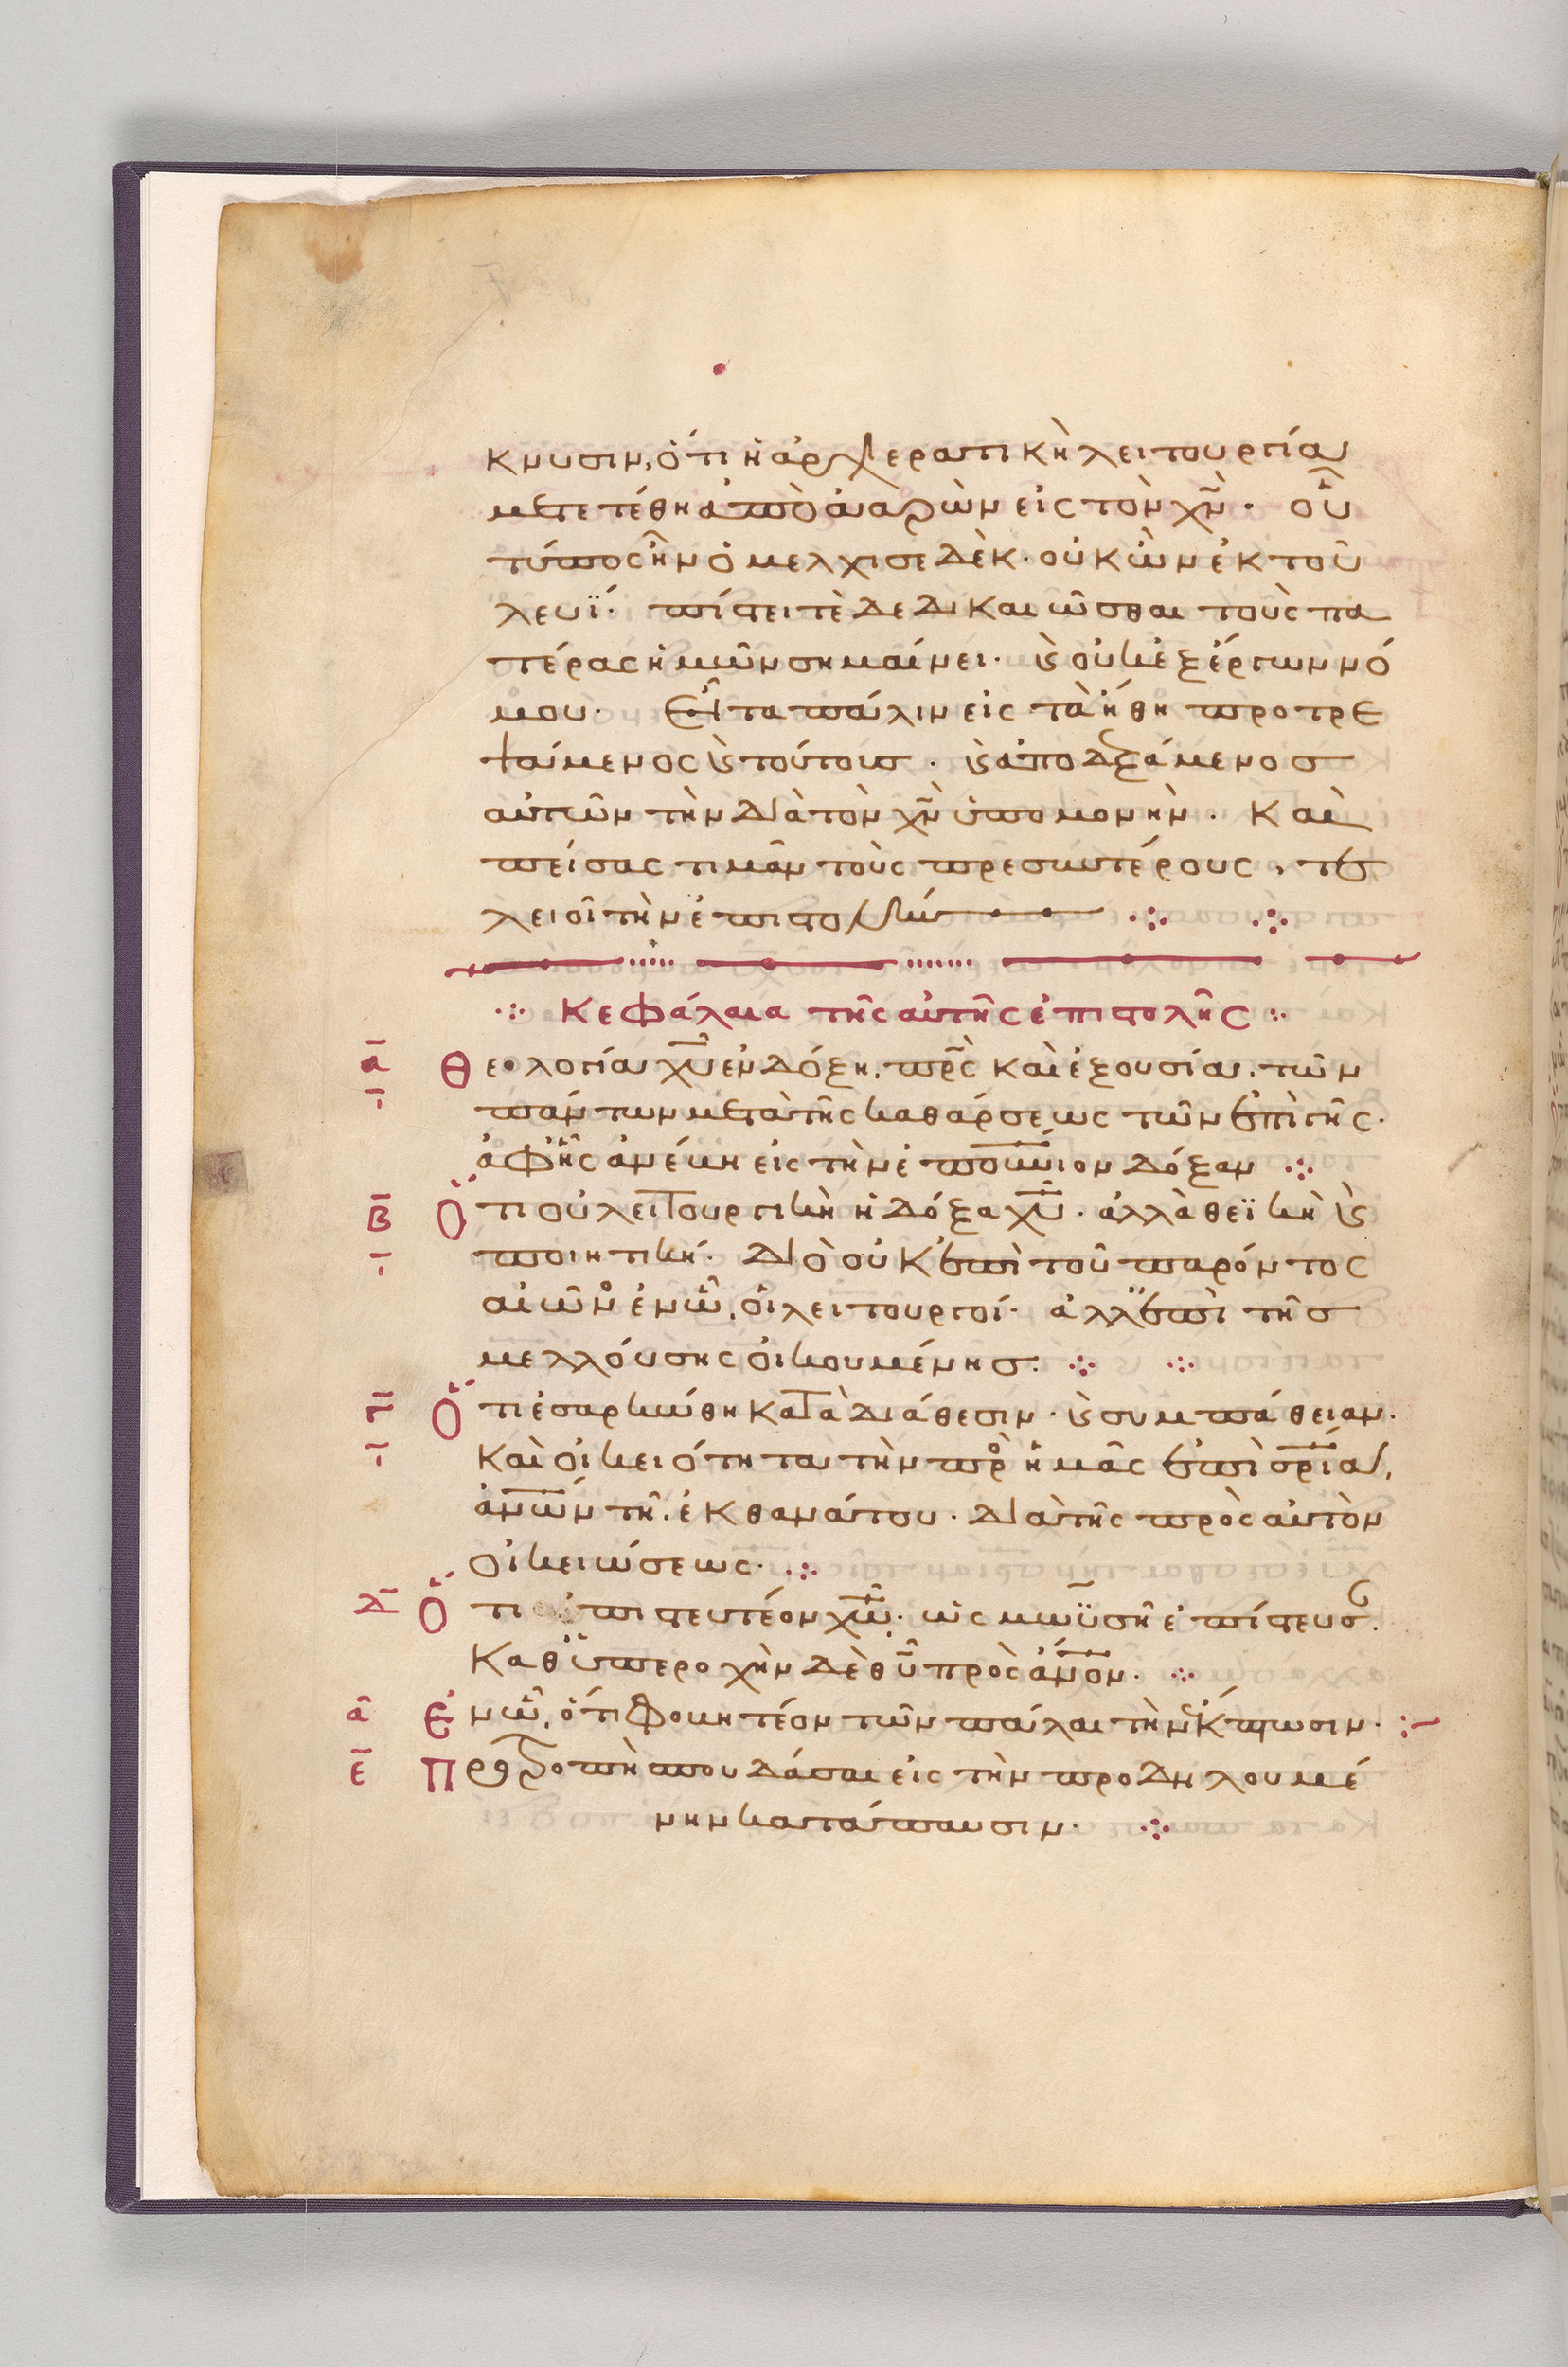 κνυσιν, ὅτι ἡ ἀρχιερατικὴ λειτουργία
μετετέθη ἀπὸ ἀαρὼν εἰς τὸν χ̅ν̅. οὗ
τύπος ἦν ὁ μελχισεδὲκ. οὐκ ὢν ἐκ τοῦ
λευΐ. πίστει τὲ δεδικαιῶσθαι τοὺς πα
τέρας ἡμῶν σημαίνει. ϗ οὐκ ἐξ ἔργων νό
μου. εἶτα πάλιν εἰς τὰ ἤθη προτρε
ψάμενος ϗ τούτους. ϗ ἀποδεξάμενος
αὐτῶν τὴν διὰ τὸν χ̅ν̅ ὑπομονὴν. Καὶ
πείσας τιμᾶν τοὺς πρεσβυτέρους, τε
λειοῖ τὴν ἐπιστολήν
Κεφάλαια τῆς αὐτῆς ἐπιστολῆς
α̅ Θεολογία χ̅υ̅ ἐν δόξη π̅ρ̅ς̅ καὶ ἐξουσία. τῶν
πάντων μετὰ τῆς καθάρσεως τῶν ἐπὶ γῆς.
ἀφ' ἧς ἀνέβη εἰς τὴν ἐπο̅υ̅ν̅ιον δόξαν
β̅ Ὅτι οὐ λειτουργικὴ ἡ δόξα χ̅υ̅. ἀλλὰ θεϊκὴ ϗ
ποιητικὴ. Διὸ οὐκ ἐπὶ τοῦ παρόντος
αἰῶνος ἐν ὧ, οἱ λειτουργοί. ἀλλ' ἐπὶ τῆς
μελλούσης οἰκουμένης.
γ̅ Ὅτι ἐσαρκώθη Κατὰ διάθεσιν. ϗ συμπάθειαν.
Καὶ οἰκειότητα τὴν πρὸς ἡμᾶς ἐπὶ σ̅ρ̅ία,
ἀ̅ν̅ω̅ν̅ τῆ, ἐκ θανάτου. Διὰ τῆς πρὸς αὐτὸν
οἰκειώσεως.
δ̅ Ὅτι πιστευτέον χ̅ω̅. ὡς μωϋσῆ ἐπίστευσ.
Καθ' ὑπεροχὴν δὲ θ̅υ̅ πρὸς ἄ̅ν̅ο̅ν̅.
α Ἐν ὧ, ὅτι φοβητέον τῶν πάλαι τὴν ἔκπτωσιν.
ε̅ Προτροπὴ σπουδάσαι εἰς τὴν προδηλουμέ
νην κατάπαυσιν.